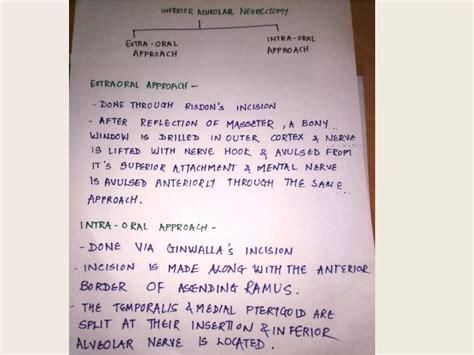 INFERIOR ALVEOLAR NEURECTOMY
EXTRA-ORAL APPROACH
INTRA-ORAL APPROACH
EXTRAORAL APPROACH -
- DONE THROUGH RISDON'S INCISION
- AFTER REFLECTION OF MASSETER, A BONY
WINDOW IS DRILLED IN OUTER CORTEX & NERVE
IS LIFTED WITH NERVE HOOK & AVULSED FROM
IT'S SUPERIOR ATTACHMENT & MENTAL NERVE
IS AVULSED ANTERIORLY THROUGH THE SAME
APPROACH.
INTRA-ORAL APPROACH -
- DONE VIA GINWALLA'S INCISION
- INCISION IS MADE ALONG WITH THE ANTERIOR
BORDER OF ASENDING RAMUS.
- THE TEMPORALIS & MEDIAL PTERYGOID ARE
SPLIT AT THEIR INSERTION & INFERIOR
ALVEOLAR NERVE IS LOCATED.